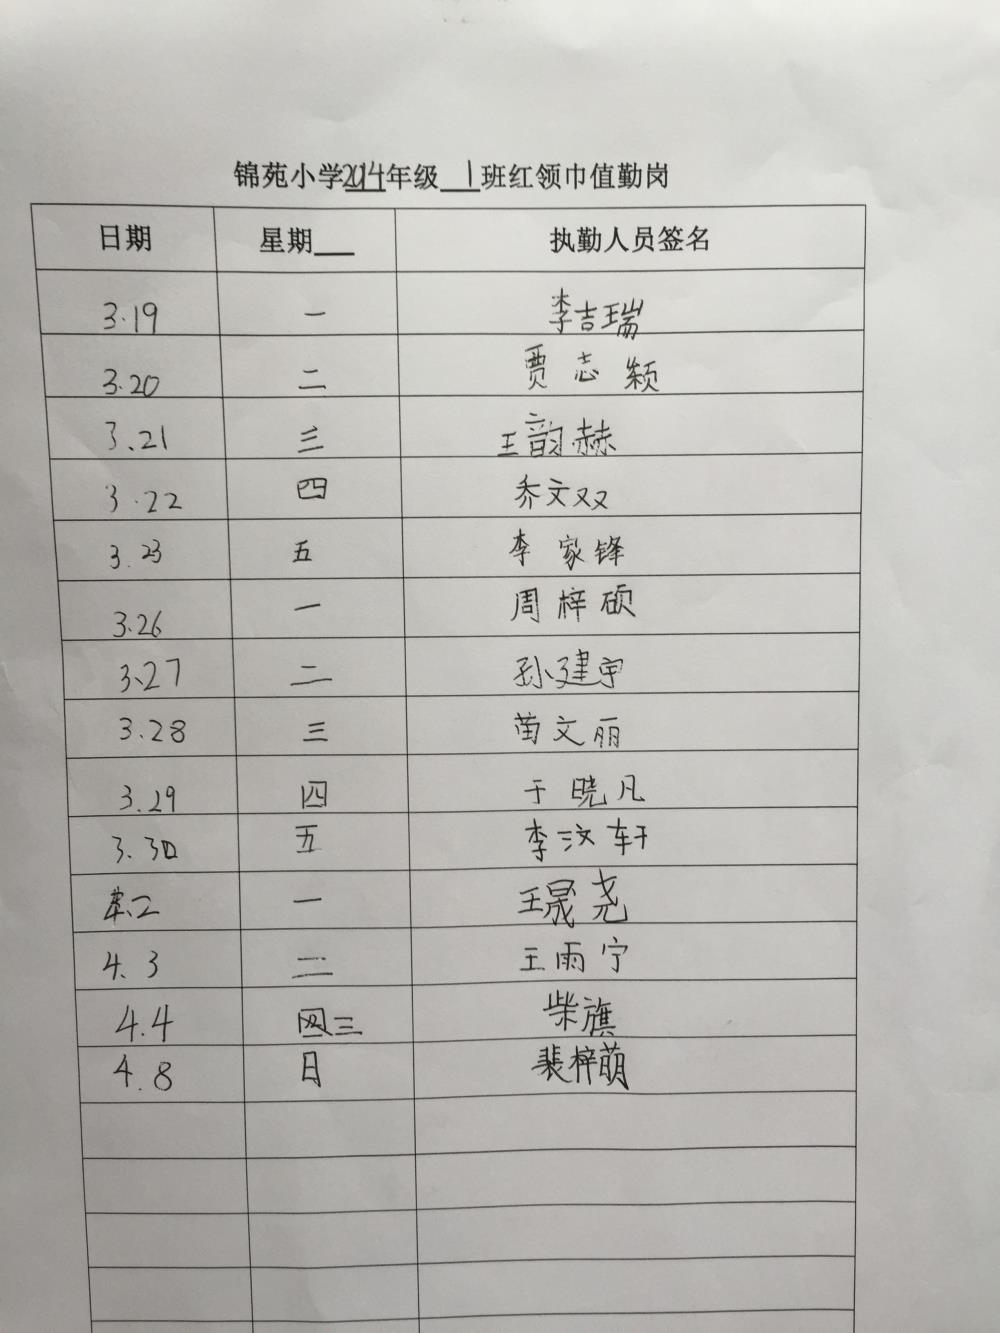 锦苑小学2014年级 1 班红领巾值勤岗
日期 星期 执勤人员签名
3.19 一 李吉瑞
3.20 二 贾志颖
3.21 三 王韵赫
3.22 四 乔文双
3.23 五 李家锋
3.26 一 周梓硕
3.27 二 孙建宇
3.28 三 苗文丽
3.29 四 于晓凡
3.30 五 李汶轩
4.2 一 王晟尧
4.3 二 王雨宁
4.4 三 柴旗
4.8 日 裴梓萌